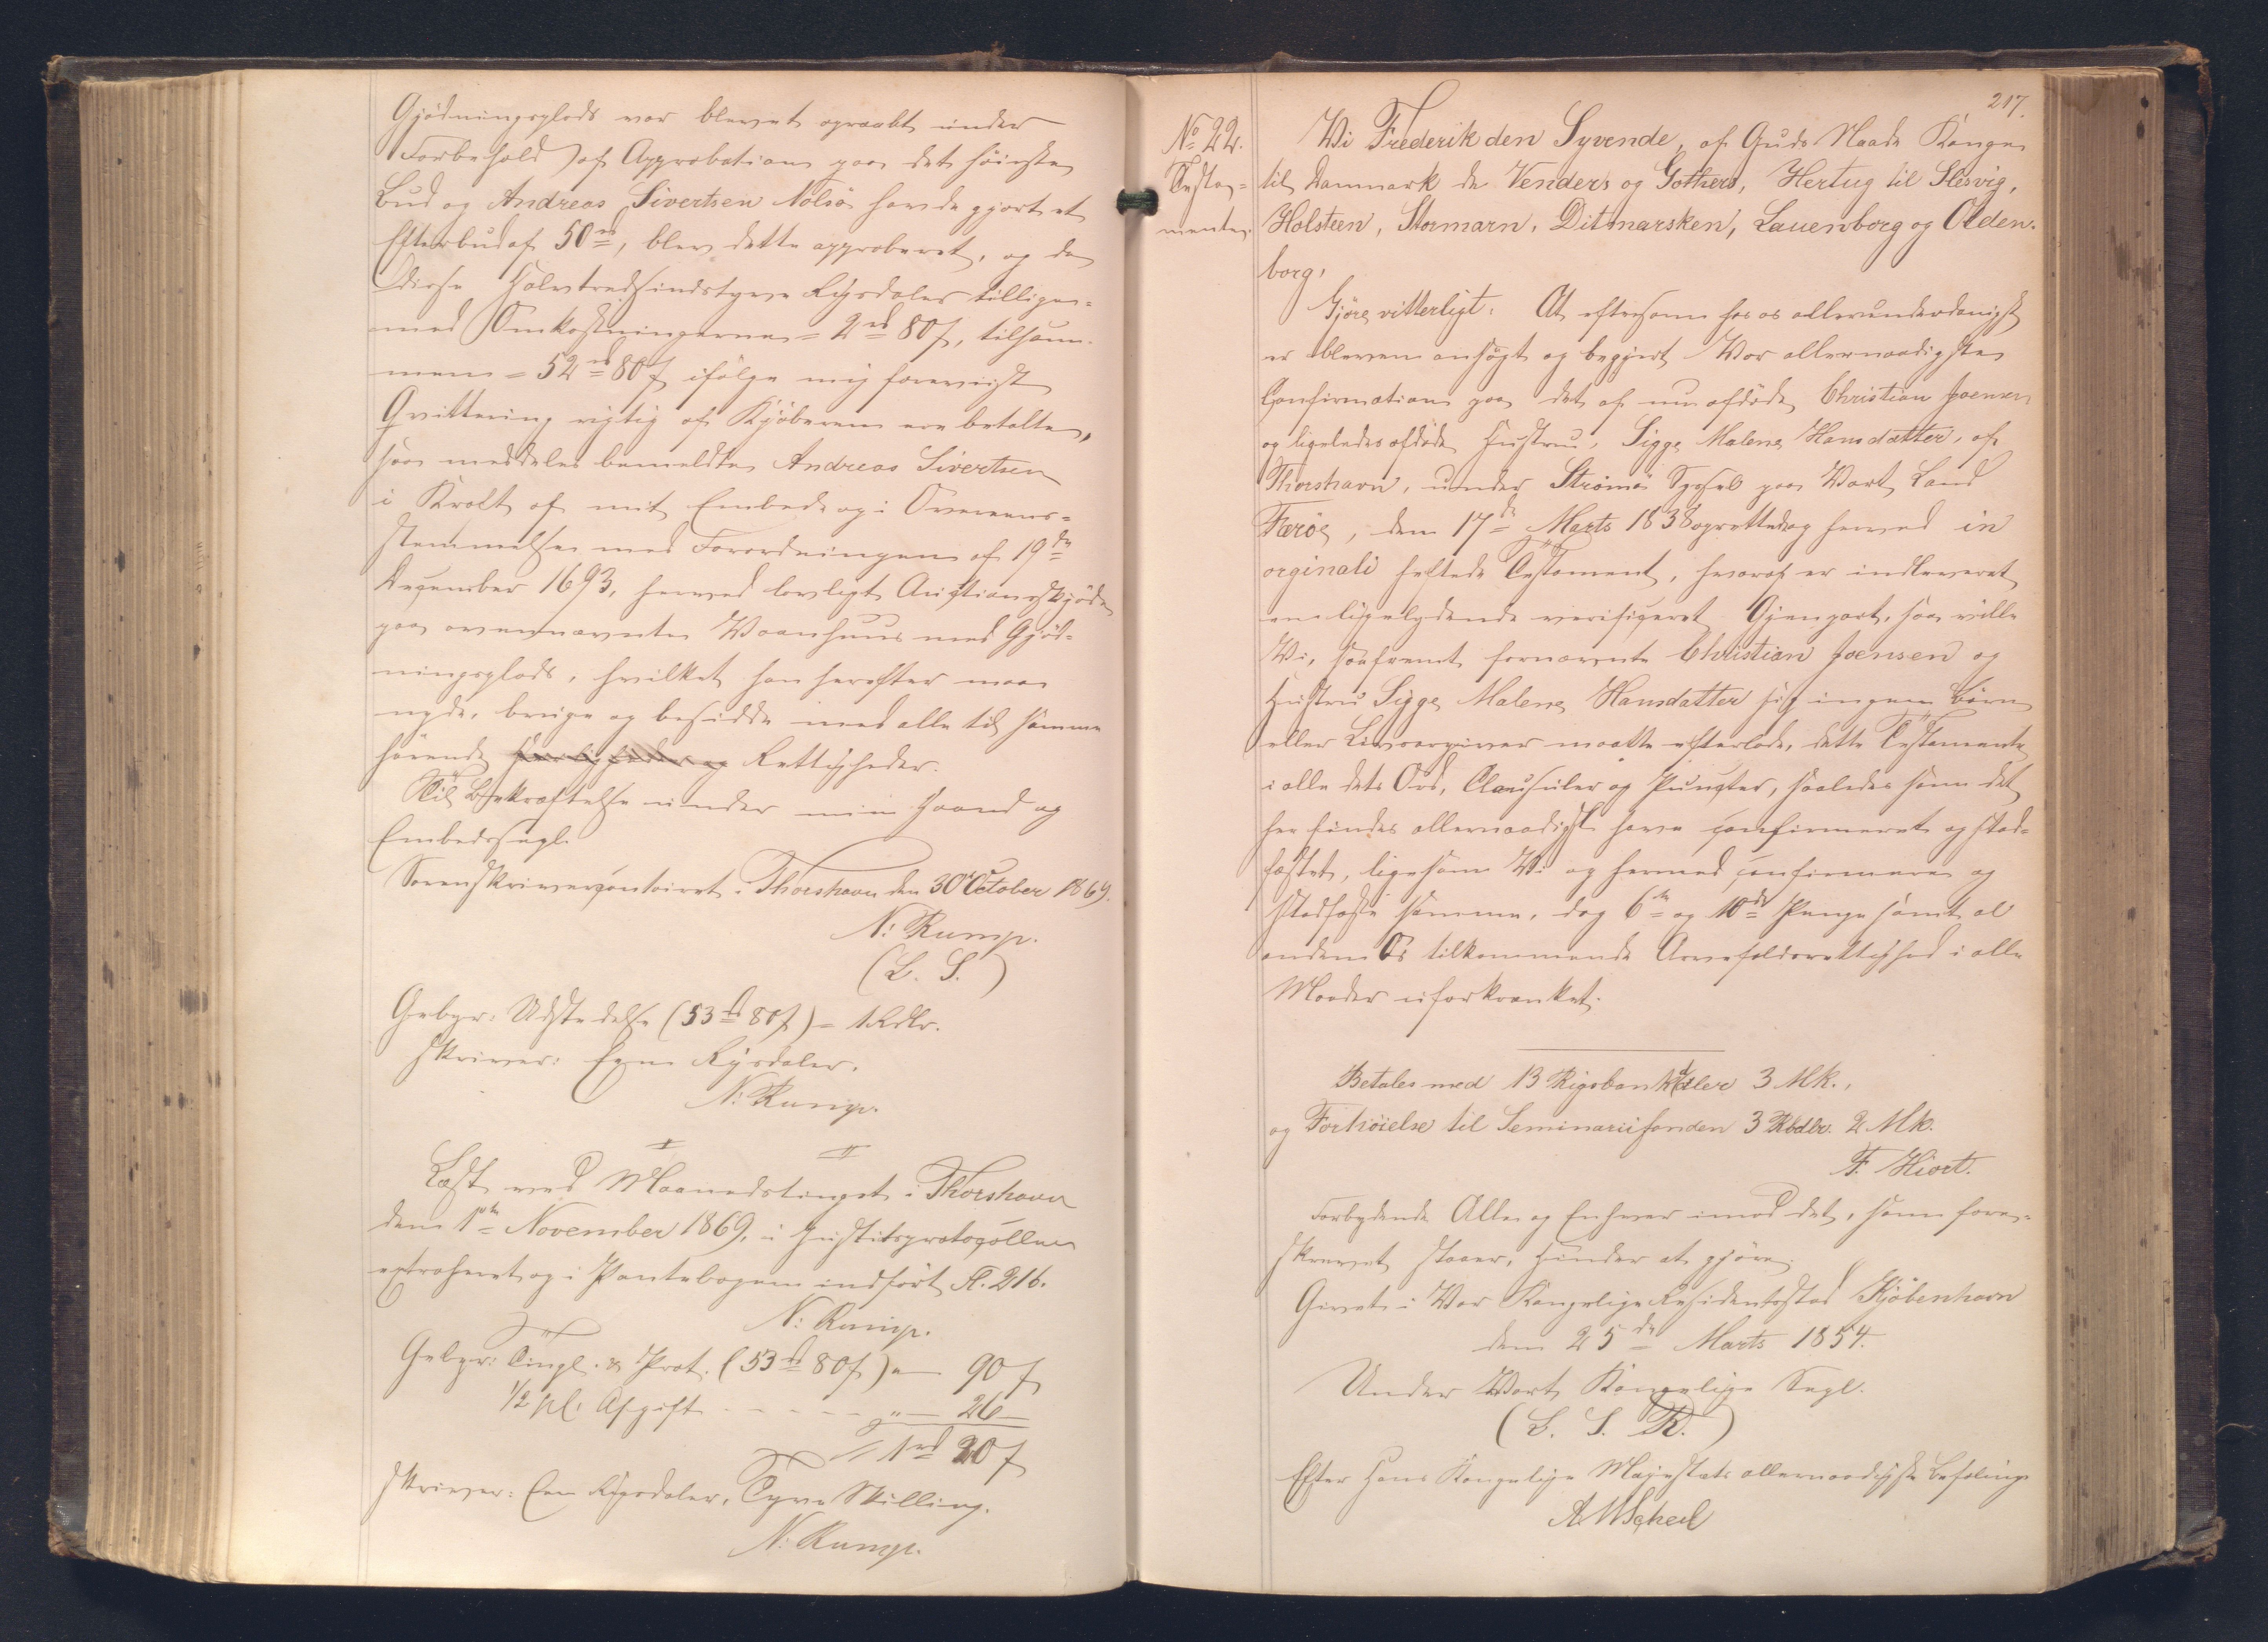 Gjødningsplads var blevet opraabt under
Forbehold af Approbation paa det høieste
Bud og Andreas Sivertsen Nolsø havde gjort et
Efterbud af 50 rd, blev dette approberet, og da
disse Halvtredsindstyve Rigsdaler tillige-
med Omkostningerne = 2 rd 80 s, tilsam-
men = 52 rd 80 s ifølge mig foreviist
Qvittering rigtig af Kjøberen ere betalte,
saa meddeles bemeldte Andreas Sivertsen
i Kraft af mit Embede og i Overeens-
stemmelse med Forordningen af 19de
December 1693, herved lovligt Auctionsskjøde
paa ovennævnte Vaanhuus med Gjød-
ningsplads, hvilket han herefter maa
nyde, bruge og besidde med alle til samme
hørende Herligheder og Rettigheder.
Til Bekræftelse under min Haand og
Embedssegl.
Sorenskrivercontoiret i Thorshavn den 30 October 1869.
N: Rump.
(L. S.)
Gebyr: Udstedelse (53 rd 80 s) = 1 Rdlr.
skriver: Een Rigsdaler.
N: Rump.
Læst ved Maanedstinget i Thorshavn
den 1ste November 1869, i Justitsprotocollen
extraheret og i Pantebogen indført Fl. 216.
N: Rump.
Gebyr: Tingl. & Prot. (53 rd 80 s) = 90 s
1/2 pCt Afgift - - - - - „ — 26 —
1 rd 20 s
skriver: Een Rigsdaler, Tyve Skilling.
N: Rump.
217.
No 22.
Testa-
mente.
Vi Frederik den Syvende, af Guds Naade Konge
til Danmark de Venders og Gothers, Hertug til Slesvig,
Holsteen, Stormarn, Ditmarsken, Lauenborg og Olden-
borg,
Gjøre vitterligt: At eftersom hos os allerunderdanigst
er bleven ansøgt og begjert Vor allernaadigste
Confirmation paa det af nu afdøde Christian Joensen
og ligeledes afdøde Hustru, Sigge Malene Hansdatter, af
Thorshavn, under Strømø Syssel paa Vort Land
Færøe, den 17de Marts 1838 oprettede og herved in
orginali heftede Testament, hvoraf er indleveret
en ligelydende verificeret Gjenpart, saa ville
Vi, saafremt fornævnte Christian Joensen og
Hustru Sigge Malene Hansdatter sig ingen Børn
eller Livsarvinger maatte efterlade, dette Testamente
i alle dets Ord, Clausuler og Puncter, saaledes som det
her findes allernaadigst have confirmeret og stad-
fæstet, ligesom Vi og hermed confirmere og
stadfæste samme, dog 6te og 10de Penge samt al
anden Os tilkommende Arvefaldsrettighed i alle
Maader uforkrænket.
Betales med 13 Rigsbankdaler 3 Mk.,
og Forhöielse til Seminariifonden 3 Rbdlr. 2 Mk.
F. Hiort.
Forbydende Alle og Enhver imod det, som fore-
skrevet staaer, Hinder at gjøre.
Givet i Vor Kongelige Residentsstad Kjøbenhavn
den 25de Marts 1854.
Under Vort Kongelige Segl.
(L. S. R.)
Efter Hans Kongelige Majestæts allernaadigste Befaling
A W Scheel